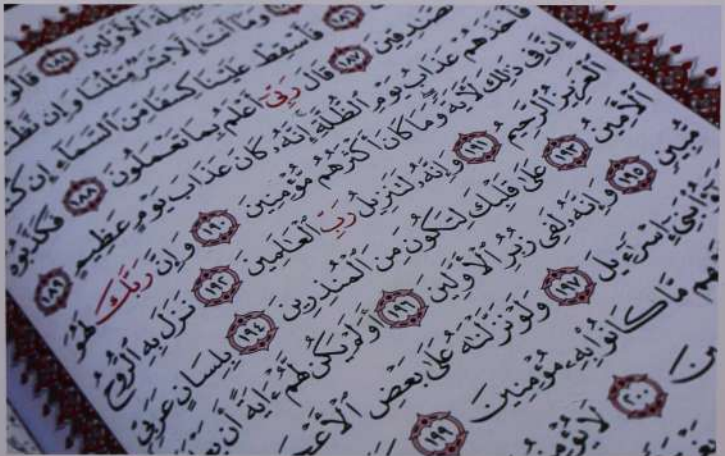 جِبِلَّةَ ٱلْأَوَّلِينَ ١٨٤ قَالُو
وَمَآ أَنتَ إِلَّا بَشَرٌ مِّثْلُنَا وَإِن نَّظُنُّ
١٨٦ فَأَسْقِطْ عَلَيْنَا كِسَفًا مِّنَ ٱلسَّمَآءِ إِن كُن
ٱلصَّٰدِقِينَ ١٨٧ قَالَ رَبِّىٓ أَعْلَمُ بِمَا تَعْمَلُونَ ١٨٨ فَكَذَّبُوهُ
فَأَخَذَهُمْ عَذَابُ يَوْمِ ٱلظُّلَّةِ إِنَّهُۥ كَانَ عَذَابَ يَوْمٍ عَظِيمٍ ١٨٩
إِنَّ فِى ذَٰلِكَ لَءَايَةً وَمَا كَانَ أَكْثَرُهُم مُّؤْمِنِينَ ١٩٠ وَإِنَّ رَبَّكَ لَهُوَ
ٱلْعَزِيزُ ٱلرَّحِيمُ ١٩١ وَإِنَّهُۥ لَتَنزِيلُ رَبِّ ٱلْعَٰلَمِينَ ١٩٢ نَزَلَ بِهِ ٱلرُّوحُ
ٱلْأَمِينُ ١٩٣ عَلَىٰ قَلْبِكَ لِتَكُونَ مِنَ ٱلْمُنذِرِينَ ١٩٤ بِلِسَانٍ عَرَبِىٍّ
مُّبِينٍ ١٩٥ وَإِنَّهُۥ لَفِى زُبُرِ ٱلْأَوَّلِينَ ١٩٦ أَوَلَمْ يَكُن لَّهُمْ ءَايَةً أَن
بَنِىٓ إِسْرَٰٓءِيلَ ١٩٧ وَلَوْ نَزَّلْنَٰهُ عَلَىٰ بَعْضِ ٱلْأَعْجَ
مَّا كَانُوا۟ بِهِۦ مُؤْمِنِينَ ١٩٩
٢٠٠ لَا يُؤْمِنُ